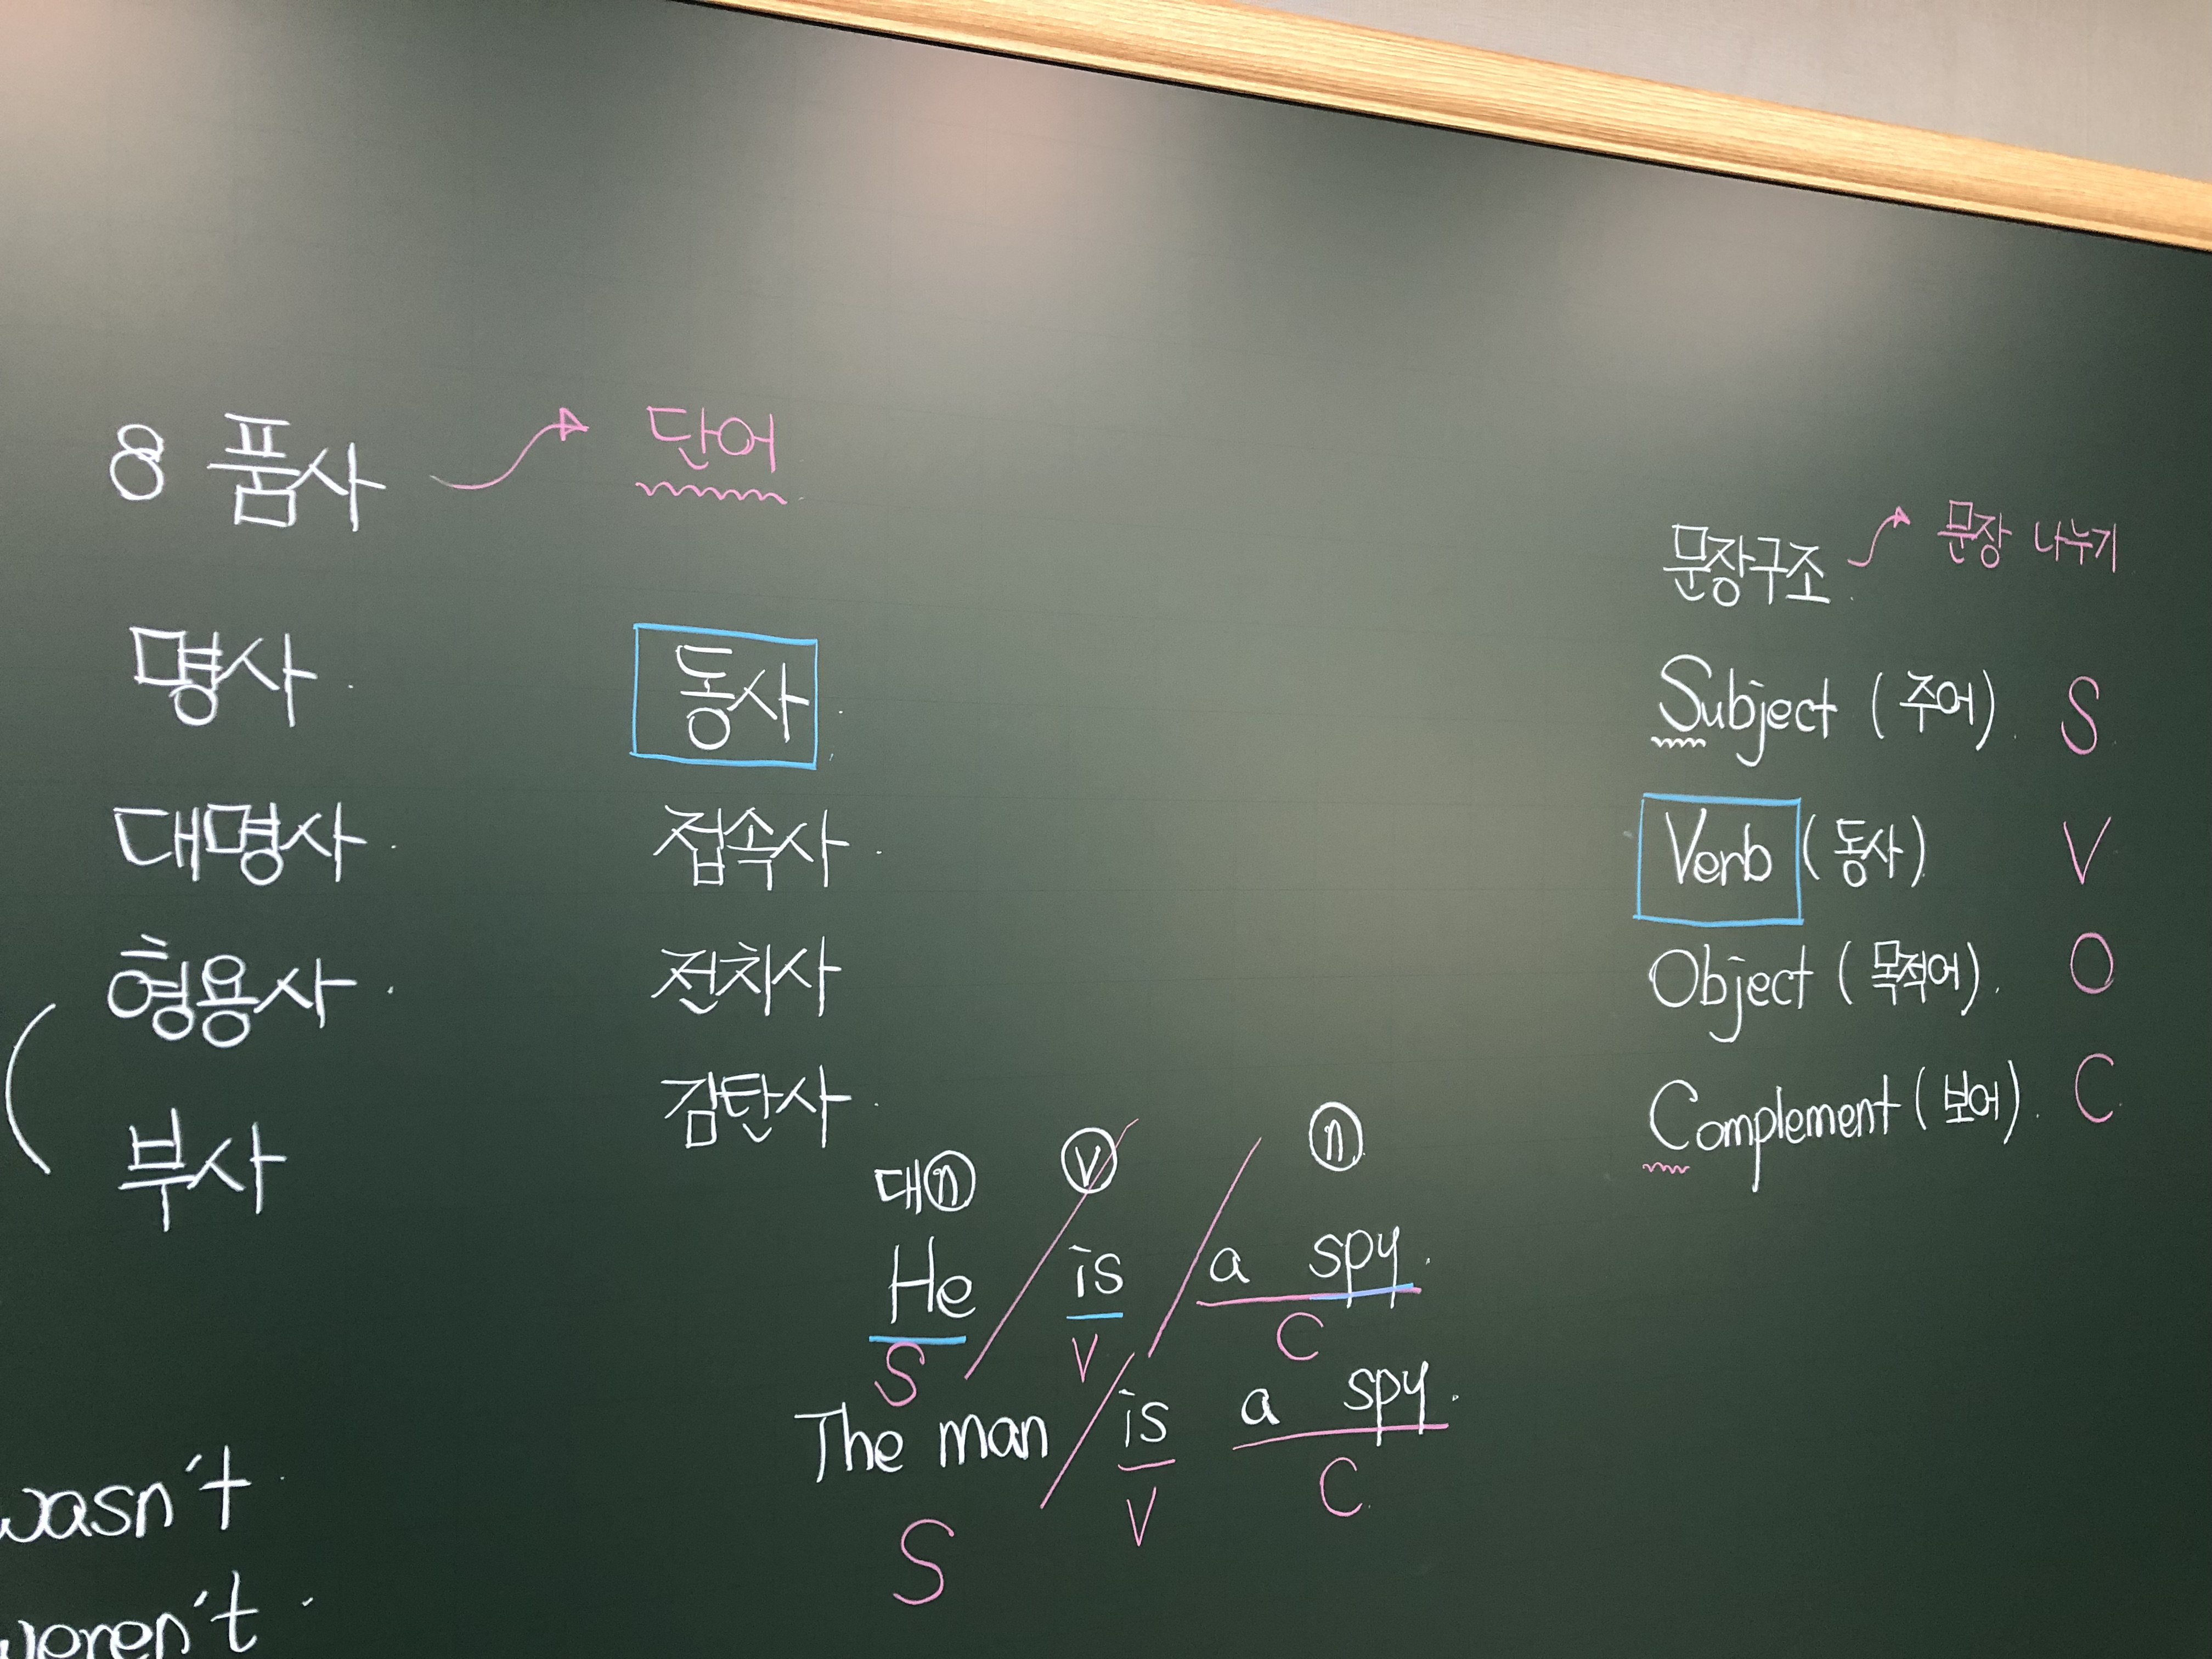 8 품사 단어
명사. 동사.
대명사. 접속사.
형용사. 전치사
부사 감탄사.
문장구조. 문장 나누기
Subject (주어). S
Verb (동사) V
Object (목적어). O
Complement (보어). C
대n v n
He is a spy.
S V C
The man is a spy.
S V C
wasn't
weren't